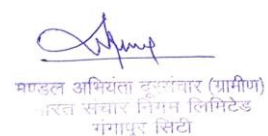 मण्डल अभियंता दूरसंचार (ग्रामीण)
भारत संचार निगम लिमिटेड
गंगापुर सिटी